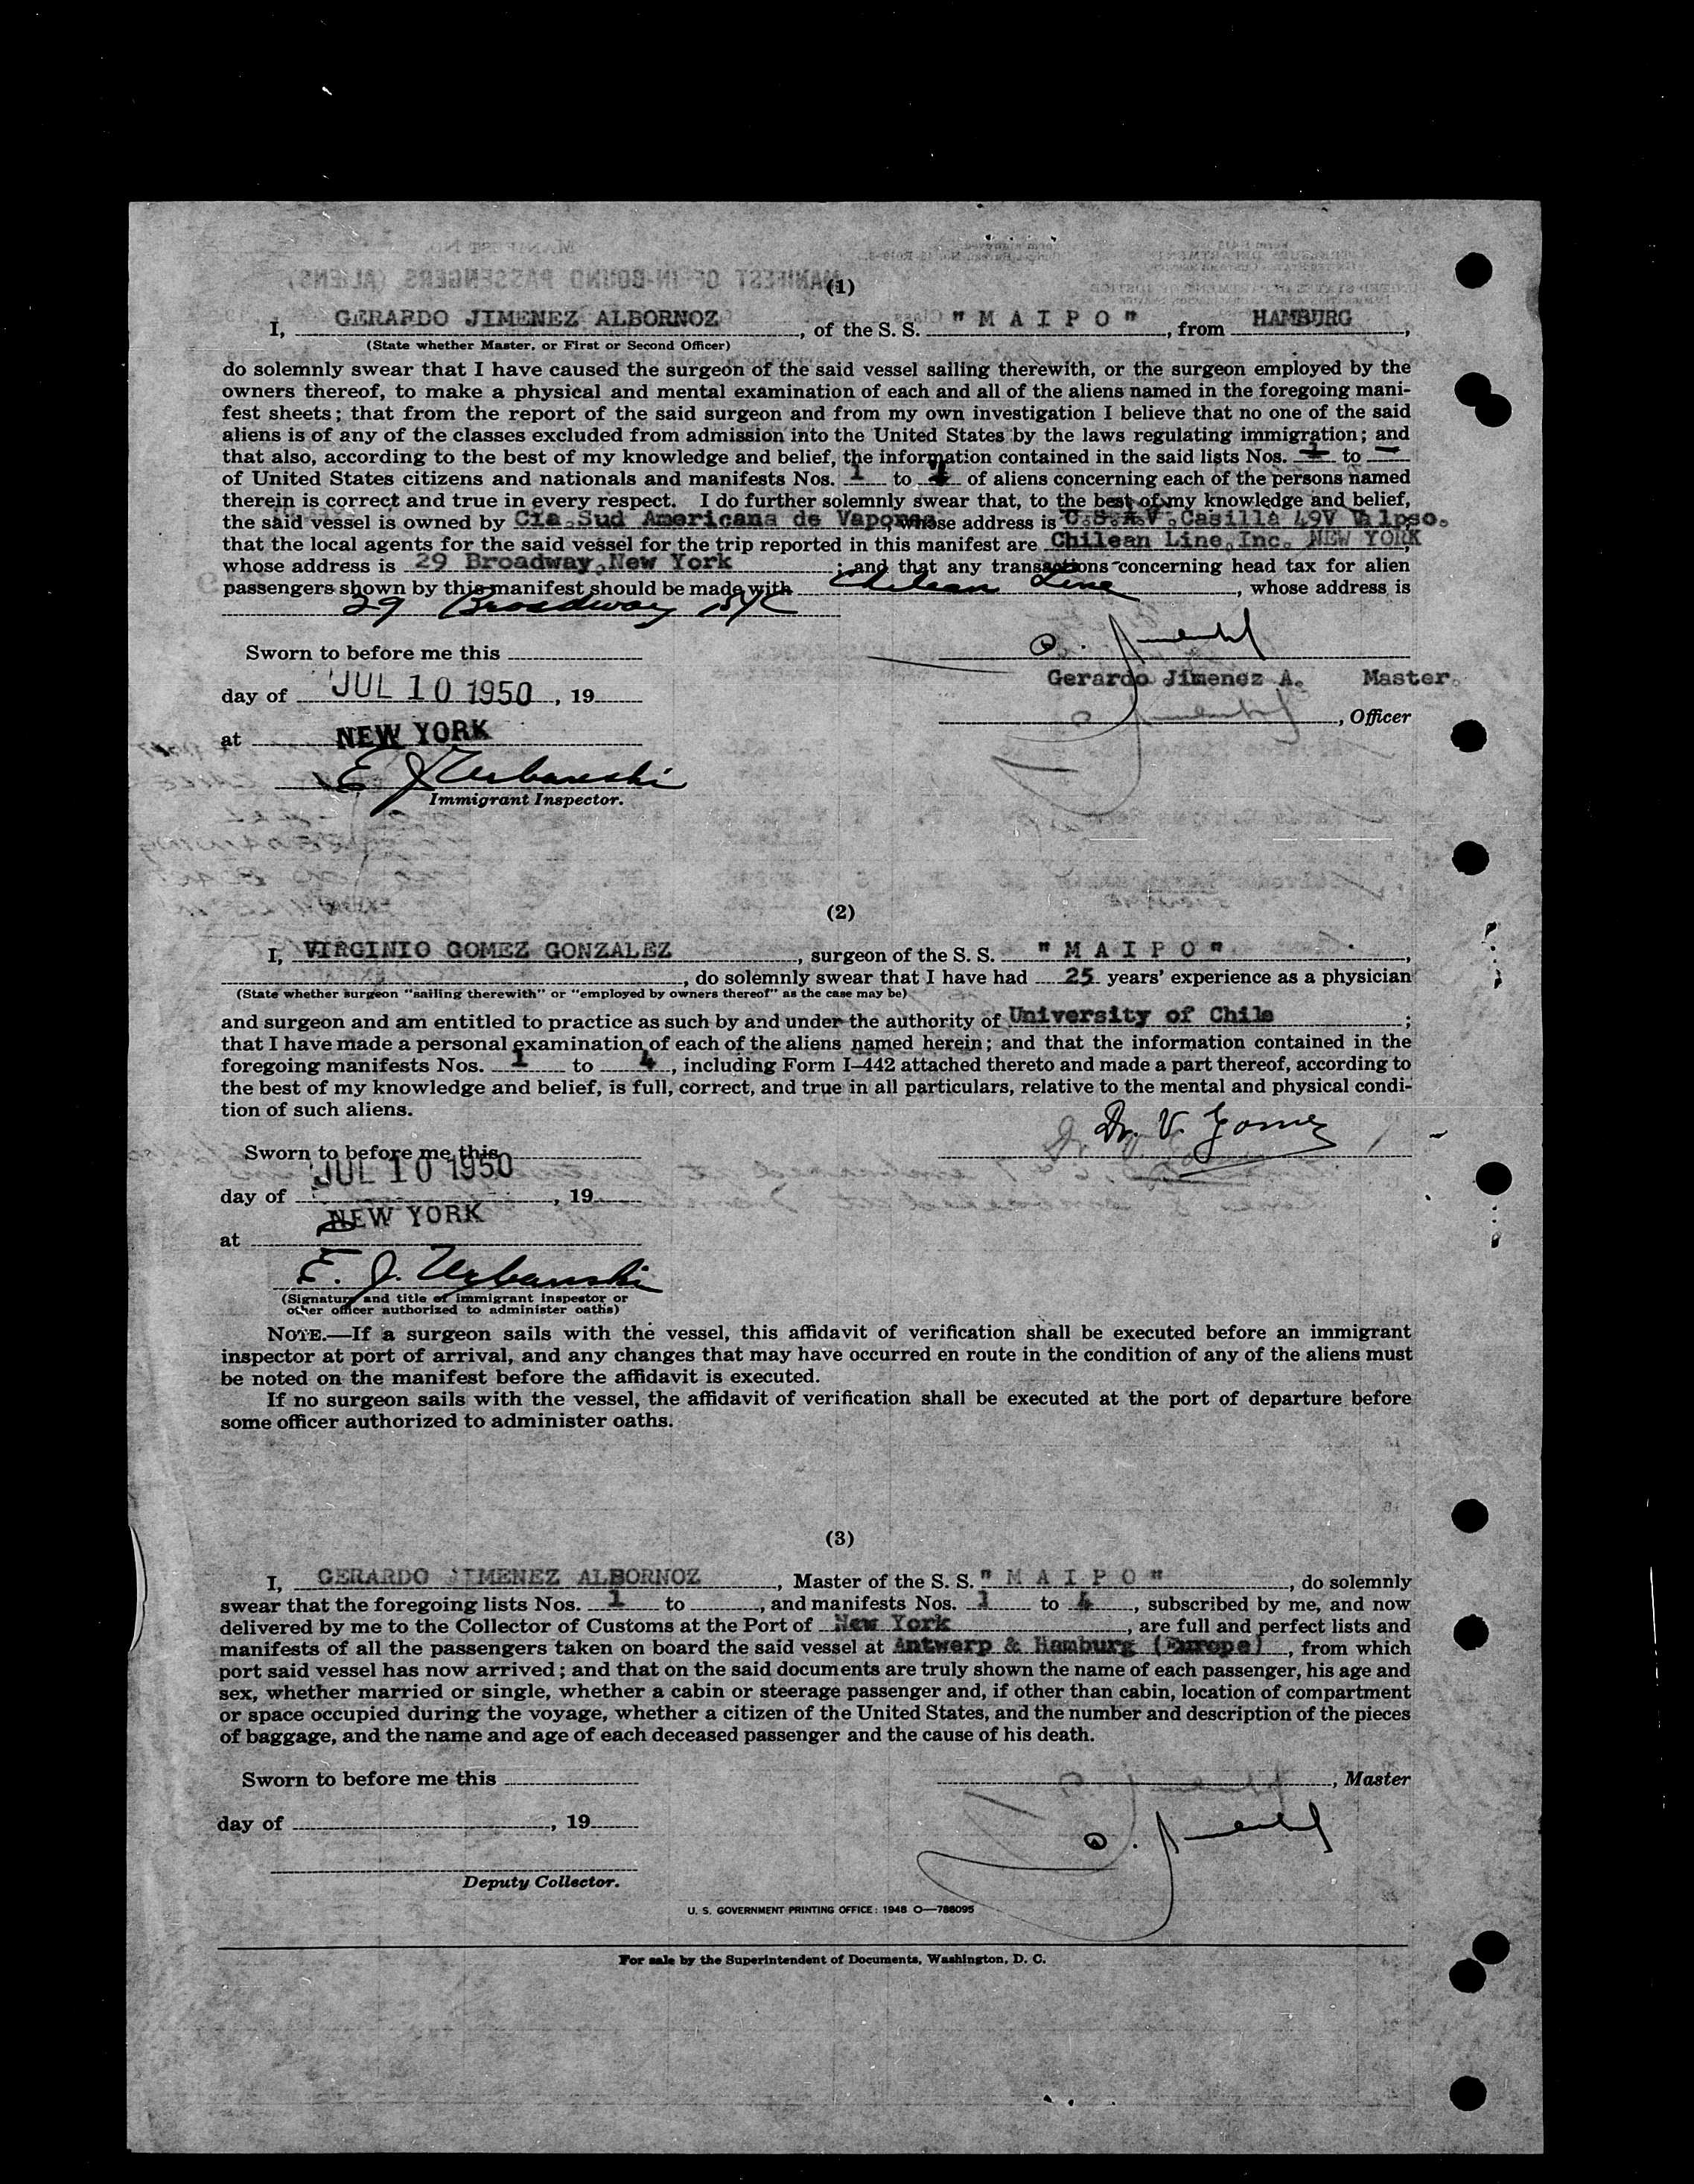 (1)
I, GERARDO JIMENEZ ALBORNOZ, of the S. S. "M A I P O", from HAMBURG,
(State whether Master, or First or Second Officer)
do solemnly swear that I have caused the surgeon of the said vessel sailing therewith, or the surgeon employed by the
owners thereof, to make a physical and mental examination of each and all of the aliens named in the foregoing mani-
fest sheets; that from the report of the said surgeon and from my own investigation I believe that no one of the said
aliens is of any of the classes excluded from admission into the United States by the laws regulating immigration; and
that also, according to the best of my knowledge and belief, the information contained in the said lists Nos. 1 to —
of United States citizens and nationals and manifests Nos. 1 to 4 of aliens concerning each of the persons named
therein is correct and true in every respect. I do further solemnly swear that, to the best of my knowledge and belief,
the said vessel is owned by Cia.Sud Americana de Vapores, whose address is C.S.A.V.Casilla 49V Valpso.
that the local agents for the said vessel for the trip reported in this manifest are Chilean Line,Inc. NEW YORK,
whose address is 29 Broadway,New York; and that any transactions concerning head tax for alien
passengers shown by this manifest should be made with Chilean Line, whose address is
29 Broadway NYC
Sworn to before me this
day of JUL 10 1950, 19
Gerardo Jimenez A. Master.
, Officer
at NEW YORK
E J Urbanski
Immigrant Inspector.
(2)
I, VIRGINIO GOMEZ GONZALEZ, surgeon of the S. S. "M A I P O",
, do solemnly swear that I have had 25 years' experience as a physician
(State whether surgeon "sailing therewith" or "employed by owners thereof" as the case may be)
and surgeon and am entitled to practice as such by and under the authority of University of Chile;
that I have made a personal examination of each of the aliens named herein; and that the information contained in the
foregoing manifests Nos. 1 to 4, including Form I–442 attached thereto and made a part thereof, according to
the best of my knowledge and belief, is full, correct, and true in all particulars, relative to the mental and physical condi-
tion of such aliens.
Dr. V. Gomez
Sworn to before me this
day of JUL 10 1950, 19
at NEW YORK
E. J. Urbanski
(Signature and title of immigrant inspector or
other officer authorized to administer oaths)
NOTE.—If a surgeon sails with the vessel, this affidavit of verification shall be executed before an immigrant
inspector at port of arrival, and any changes that may have occurred en route in the condition of any of the aliens must
be noted on the manifest before the affidavit is executed.
If no surgeon sails with the vessel, the affidavit of verification shall be executed at the port of departure before
some officer authorized to administer oaths.
(3)
I, GERARDO JIMENEZ ALBORNOZ, Master of the S. S. "M A I P O", do solemnly
swear that the foregoing lists Nos. 1 to , and manifests Nos. 1 to 4, subscribed by me, and now
delivered by me to the Collector of Customs at the Port of New York, are full and perfect lists and
manifests of all the passengers taken on board the said vessel at Antwerp & Hamburg (Europe), from which
port said vessel has now arrived; and that on the said documents are truly shown the name of each passenger, his age and
sex, whether married or single, whether a cabin or steerage passenger and, if other than cabin, location of compartment
or space occupied during the voyage, whether a citizen of the United States, and the number and description of the pieces
of baggage, and the name and age of each deceased passenger and the cause of his death.
Sworn to before me this
, Master
day of , 19
Deputy Collector.
U. S. GOVERNMENT PRINTING OFFICE: 1948 O—788095
For sale by the Superintendent of Documents, Washington, D. C.